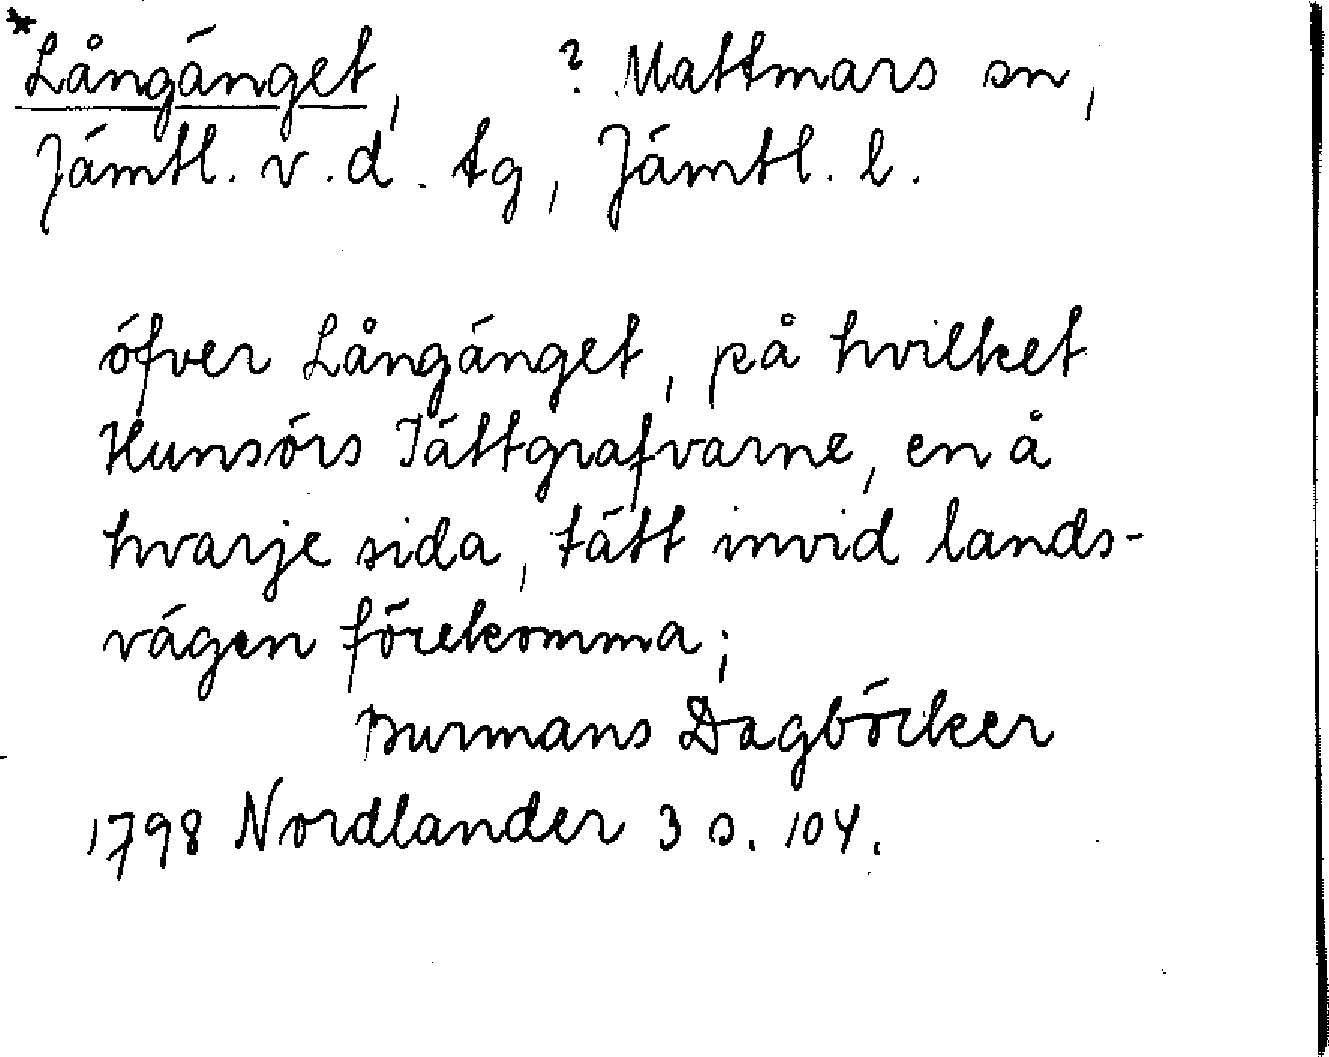 *Långänget, ? Mattmars sn,
Jämtl. v. d. tg, Jämtl. l.
öfver Långänget, på hvilket
Hunsörs Tättgrafvarne, en å
hvarje sida, tätt invid lands-
vägen förekomma;
Burmans Dagböcker
1798 Nordlander 3 s. 104.